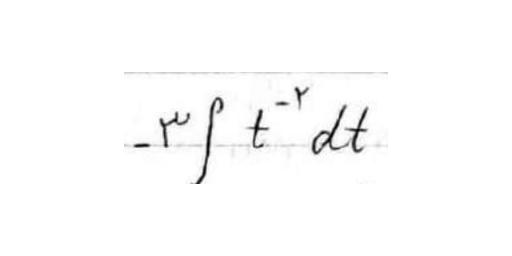 -۳∫ t⁻² dt